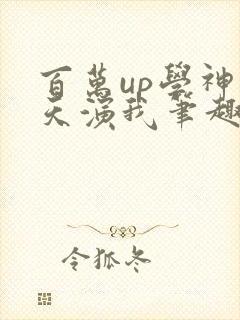 百萬up學神
天演我筆趣
令狐冬